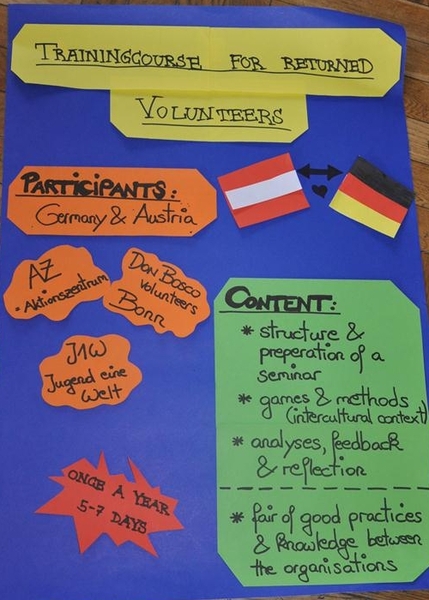 TRAININGCOURSE FOR RETURNED
VOLUNTEERS
PARTICIPANTS:
Germany & Austria
AZ
• Aktionszentrum
Don Bosco
Volunteers
Bonn
J1W
Jugend eine
Welt
ONCE A YEAR
5-7 DAYS
CONTENT:
* structure &
preperation of a
seminar
* games & methods
(intercultural context)
* analyses, feedback
& reflection
* fair of good practices
& knowledge between
the organisations